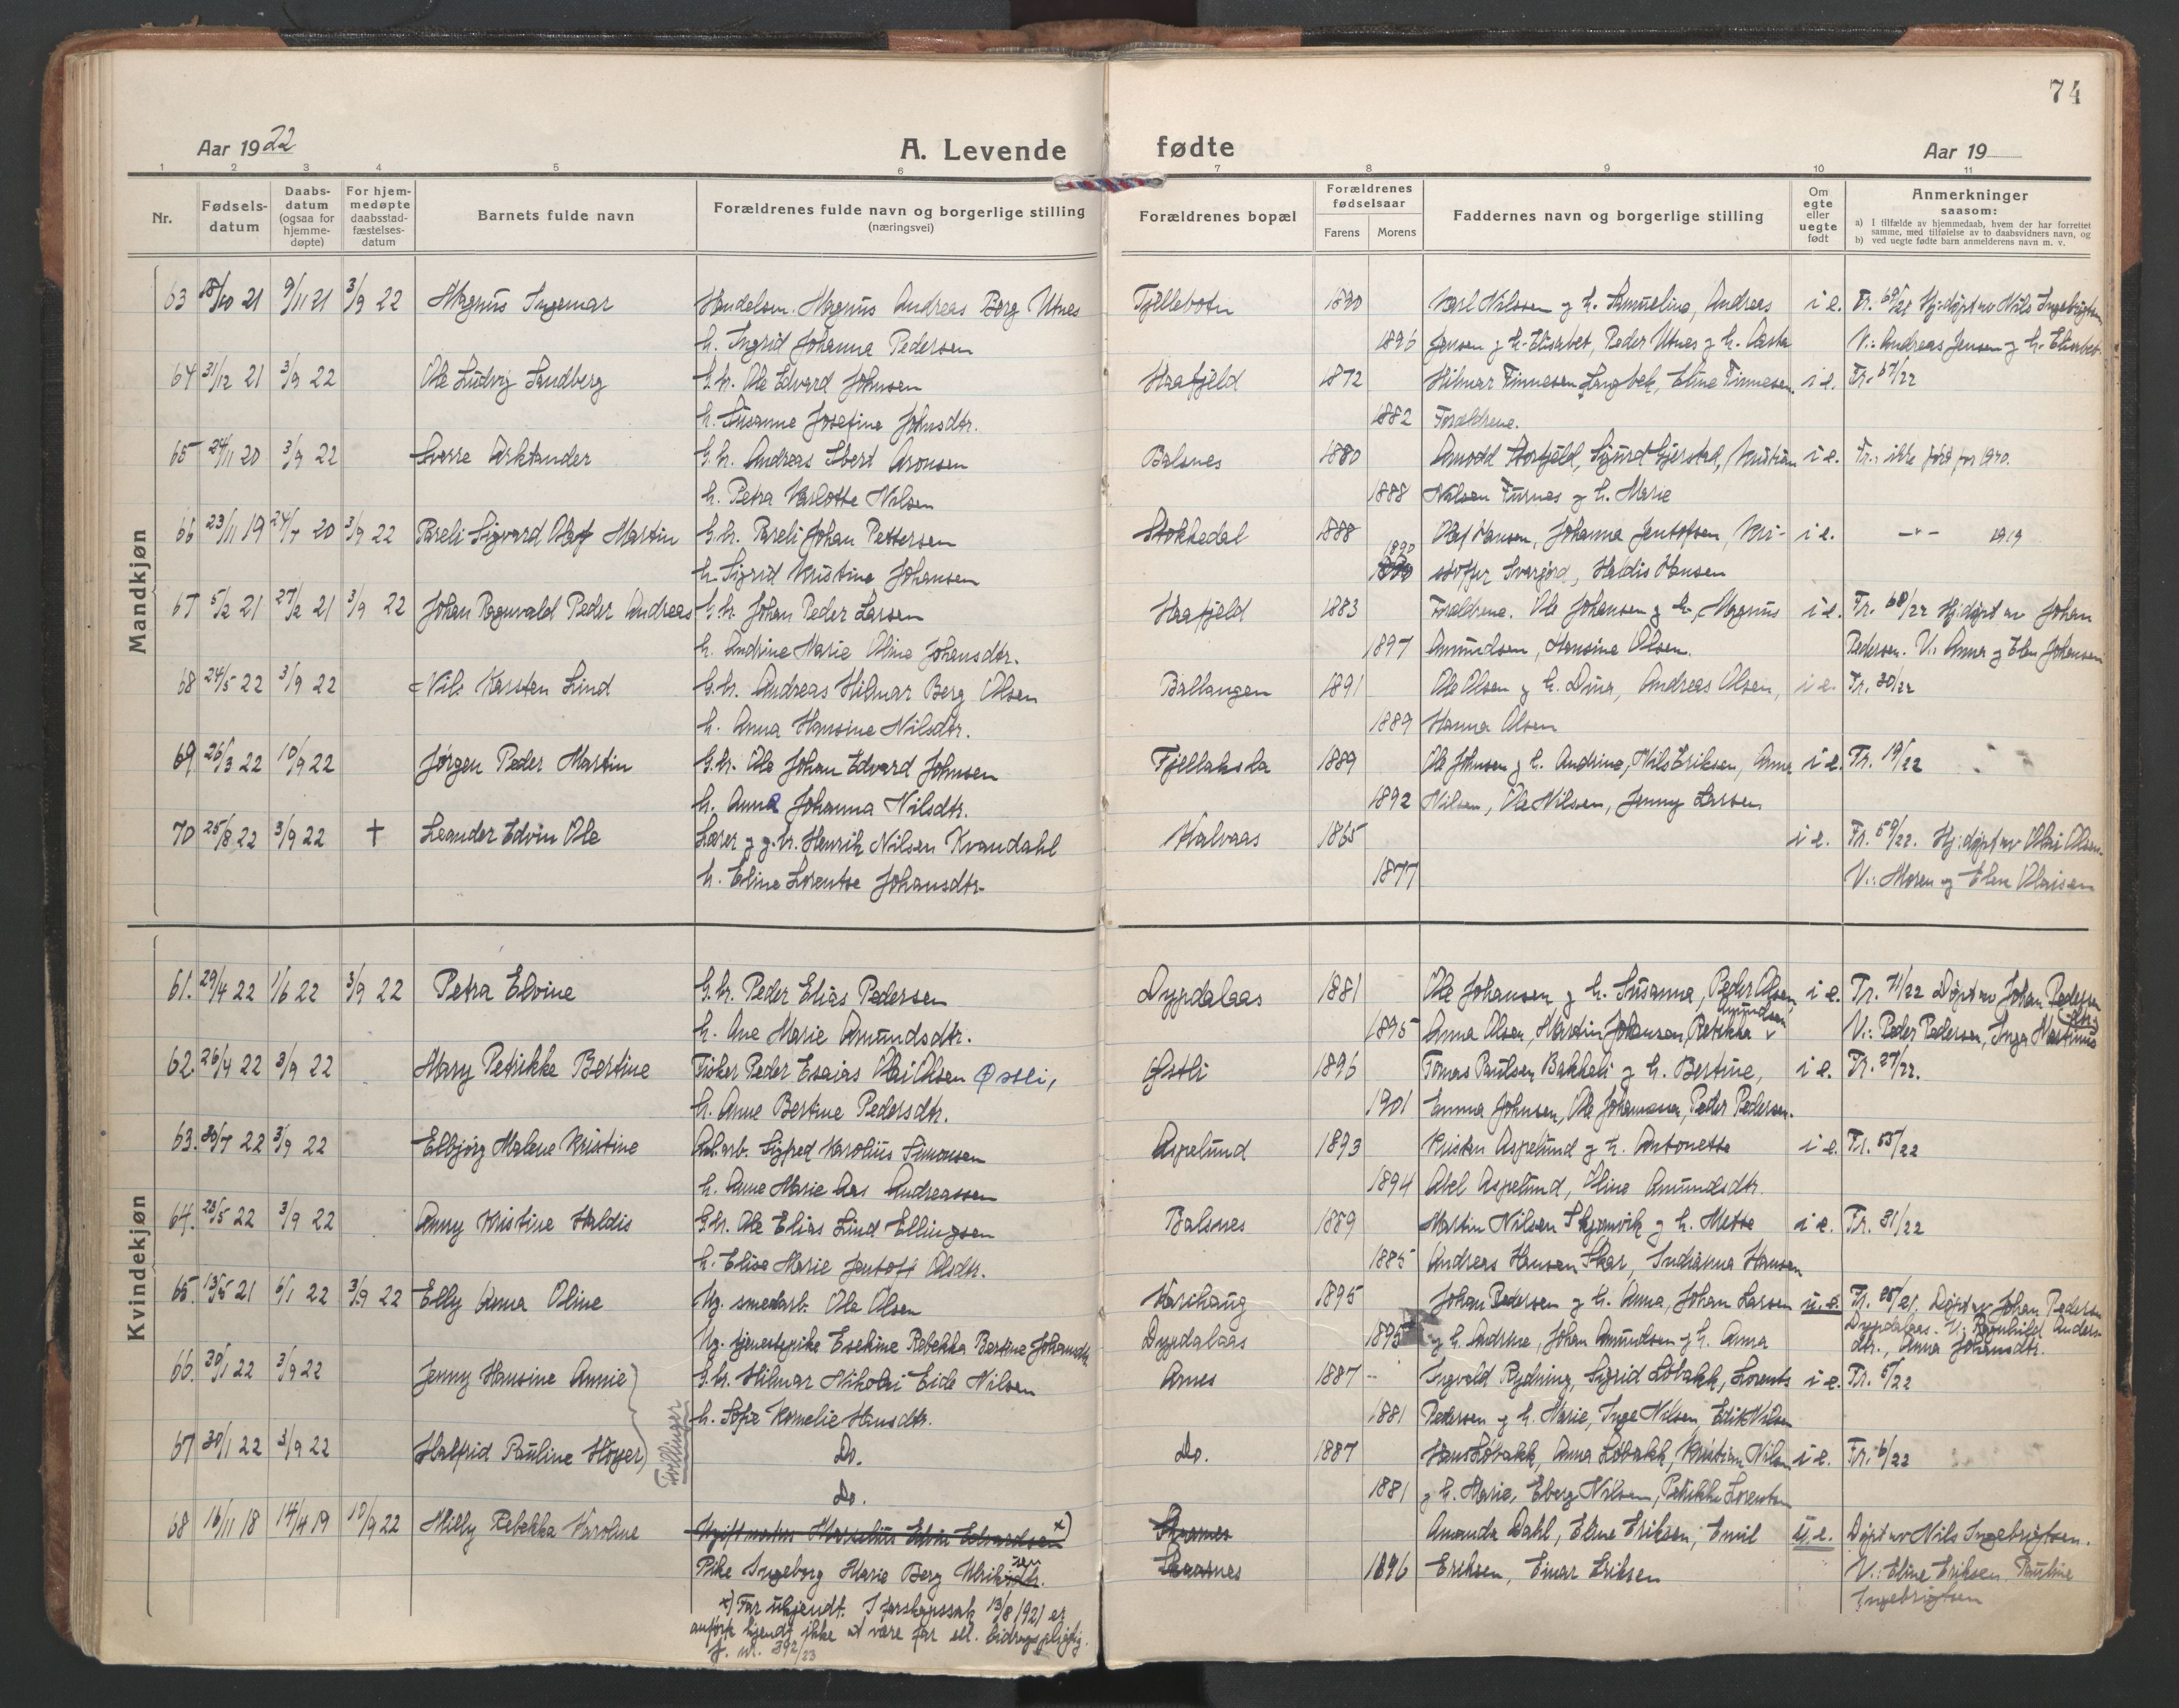 74
Aar 1922 A. Levende fødte Aar 19
1 2 3 4 5 6 7 8 9 10 11
Nr.
Fødsels-
datum
Daabs-
datum
(ogsaa for
hjemme-
døpte)
For hjem-
medøpte
daabsstad-
fæstelses-
datum
Barnets fulde navn
Forældrenes fulde navn og borgerlige stilling
(næringsvei)
Forældrenes bopæl
Forældrenes
fødselsaar
Farens Morens
Faddernes navn og borgerlige stilling
Om
egte
eller
uegte
født
Anmerkninger
saasom:
a) I tilfælde av hjemmedaab, hvem der har forrettet
samme, med tilføielse av to daabsvidners navn, og
b) ved uegte fødte barn anmelderens navn m. v.
Mandkjøn
63 18/10 21 9/11 21 3/9 22 Magnus Ingemar Handelsm. Magnus Andreas Berg Utnes Fjellebotn 1890 Karl Nilssen g h. Samueline, Andreas i e. Fr. 69/21 Hj:døpt av Nils Ingebrigtsen
h. Ingrid Johanna Pedersen 1896 Jensen g h. Elisabet, Peder Utnes g h. Aasta V.: Andreas Jensen g h. Elisabet
64 31/12 21 3/9 22 Ole Ludvig Sandberg G.br. Ole Edvard Johnsen Haafjeld 1872 Hilmar Finnesen Langbek, Eline Finnesen i e. Fr. 67/22
h. Susanne Josefine Johnsdtr. 1882 Forældrene.
65 24/11 20 3/9 22 Sverre Arktander G.br. Andreas Ebert Aronsen Balsnes 1880 Amodd Storfjeld, Sigurd Gjerstad, Kristian i e. Fr.: ikke ført for 1920.
h. Petra Karlotte Nilsen 1888 Nilsen Furnes g h. Marie
66 23/11 19 24/7 20 3/9 22 Pareli Sigvard Olaf Martin G.br. Pareli Johan Pettersen Stokkedal 1888 Olaf Hansen, Johanna Jentoftsen, Kri- i e. -"- 1919
h. Sigrid Kristine Johansen 1890 stoffer Svarjord, Haldis Hansen
67 5/2 21 27/2 21 3/9 22 Johan Ragnvald Peder Andreas G.br. Johan Peder Larsen Haafjeld 1883 Forældrene. Ole Johansen g h., Magnus i e. Fr. 68/22 Hj:døpt av Johan
h. Andrine Marie Oline Johansdtr. 1897 Amundsen, Hansine Olsen. Pedersen. V.: Anna g Elen Johansen
68 24/5 22 3/9 22 Nils Karsten Lind G.br. Andreas Hilmar Berg Olsen Ballangen 1891 Ole Olsen g h. Dina, Andreas Olsen, i e. Fr. 30/22
h. Anna Hansine Nilsdtr. 1889 Hanna Olsen
69 26/3 22 10/9 22 Jørgen Peder Martin G.br. Ole Johan Edvard Johnsen Fjellaksla 1889 Ole Johnsen g h. Andrine, Nils Eriksen, Anna i e. Fr. 19/22
h. Anna Johanna Nilsdtr. 1892 Nilsen, Ole Nilsen, Jenny Larsen
70 25/8 22 3/9 22 † Leander Edvin Ole Lærer g g.br. Henrik Nilsen Kvandahl Kalvaas 1865 i e. Fr. 59/22. Hj:døpt av Olai Olsen.
h. Eline Lorentse Johansdtr. 1877 V.: Moren g Elen Olaisen
Kvindekjøn
61. 29/4 22 1/6 22 3/9 22 Petra Elvine G.br. Peder Elias Pedersen Dypdalaas 1881 Ole Johansen g h. Susanna, Peder Olsen, i e. Fr. 71/22 Døpt av Johan Pedersen
h. Ane Marie Amundsdtr. 1895 Anna Olsen, Martin Johansen, Rebekka Amundsen V.: Peder Pedersen, Inga Martinus
62. 26/4 22 3/9 22 Mary Petrikke Bertine Fisker Peder Esaias Olai Olsen Østli, Østli 1896 Tomas Paulsen Bakkeli g h. Bertine, i e. Fr. 27/22.
h. Anne Bertine Pedersdtr. 1901 Emma Johnsen, Ole Johannesen, Peder Pedersen.
63. 30/7 22 3/9 22 Elbjørg Malene Kristine Anl.arb. Sigfred Karolius Simonsen Aspelund 1893 Kristen Aspelund g h. Antonette i e. Fr. 55/22
h. Anne Marie Aas Andreassen 1894 Abel Aspelund, Oline Amundsdtr.
64. 28/5 22 3/9 22 Anny Kristine Haldis G.br. Ole Elias Lind Ellingsen Balsnes 1889 Martin Nilsen Skjomvik g h. Mette i e. Fr. 31/22
h. Elise Marie Jentoft Olsdtr. 1885 Andreas Hansen Skar, Indianna Hansen
65. 13/5 21 6/1 22 3/9 22 Elly Anna Oline Ug. smedarb. Ole Olsen Karihaug 1895 Johan Pedersen g h. Anna, Johan Larsen u.e. Fr. 25/21. Døpt av Johan Pedersen
Ug. tjenestepike Esekine Rebekka Bertine Johansdtr. Dypdalaas 1895 g h. Andrine, Johan Amundsen g h. Anna Dypdalaas. V.: Ragnhild Anders-
dtr., Anna Johansdtr.
66. 30/1 22 3/9 22 Jenny Hansine Annie G.br. Hilmar Nikolai Eide Nilsen Arnes 1887 Ingvald Rydning, Sigrid Løbakk, Lorents i e. Fr. 5/22
h. Sofie Kornelie Hansdtr. 1881 Pedersen g h. Marie, Inge Nilsen, Edit Nilsen
Tvillinger
67 30/1 22 3/9 22 Halfrid Pauline Høyer Do. Do. 1887 Hans Løbakk, Anna Løbakk, Kristian Nilsen i e. Fr. 6/22
Do. 1881 g h. Marie, Eberg Nilsen, Petrikke Lorentsen
68 16/11 18 14/4 19 10/9 22 Milly Rebekka Karoline Ugift Edvardsen x) Amanda Dahl, Eline Eriksen, Emil u.e. Døpt av Nils Ingebrigtsen.
Pike Ingeborg Marie Berg Ulriksen 1896 Eriksen, Einar Eriksen V.: Eline Eriksen. Pauline
Ingebrigtsen
x) Far ukjendt. I farskapssak 13/8 1921 er
anførte kjendt ikke at være far ell. bidragspligtig.
J. nr. 392/23